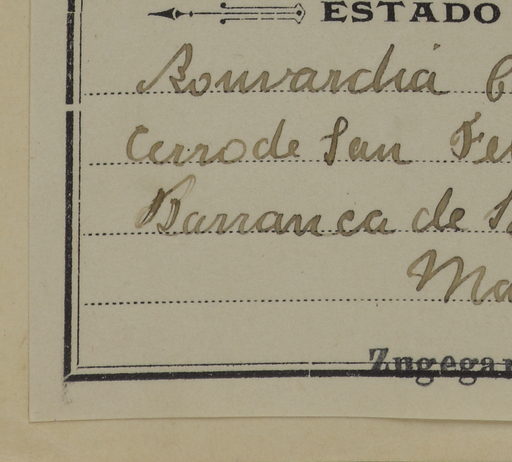 ESTADO
Bouvardia
Cerro de San
Barranca de
Zugegan